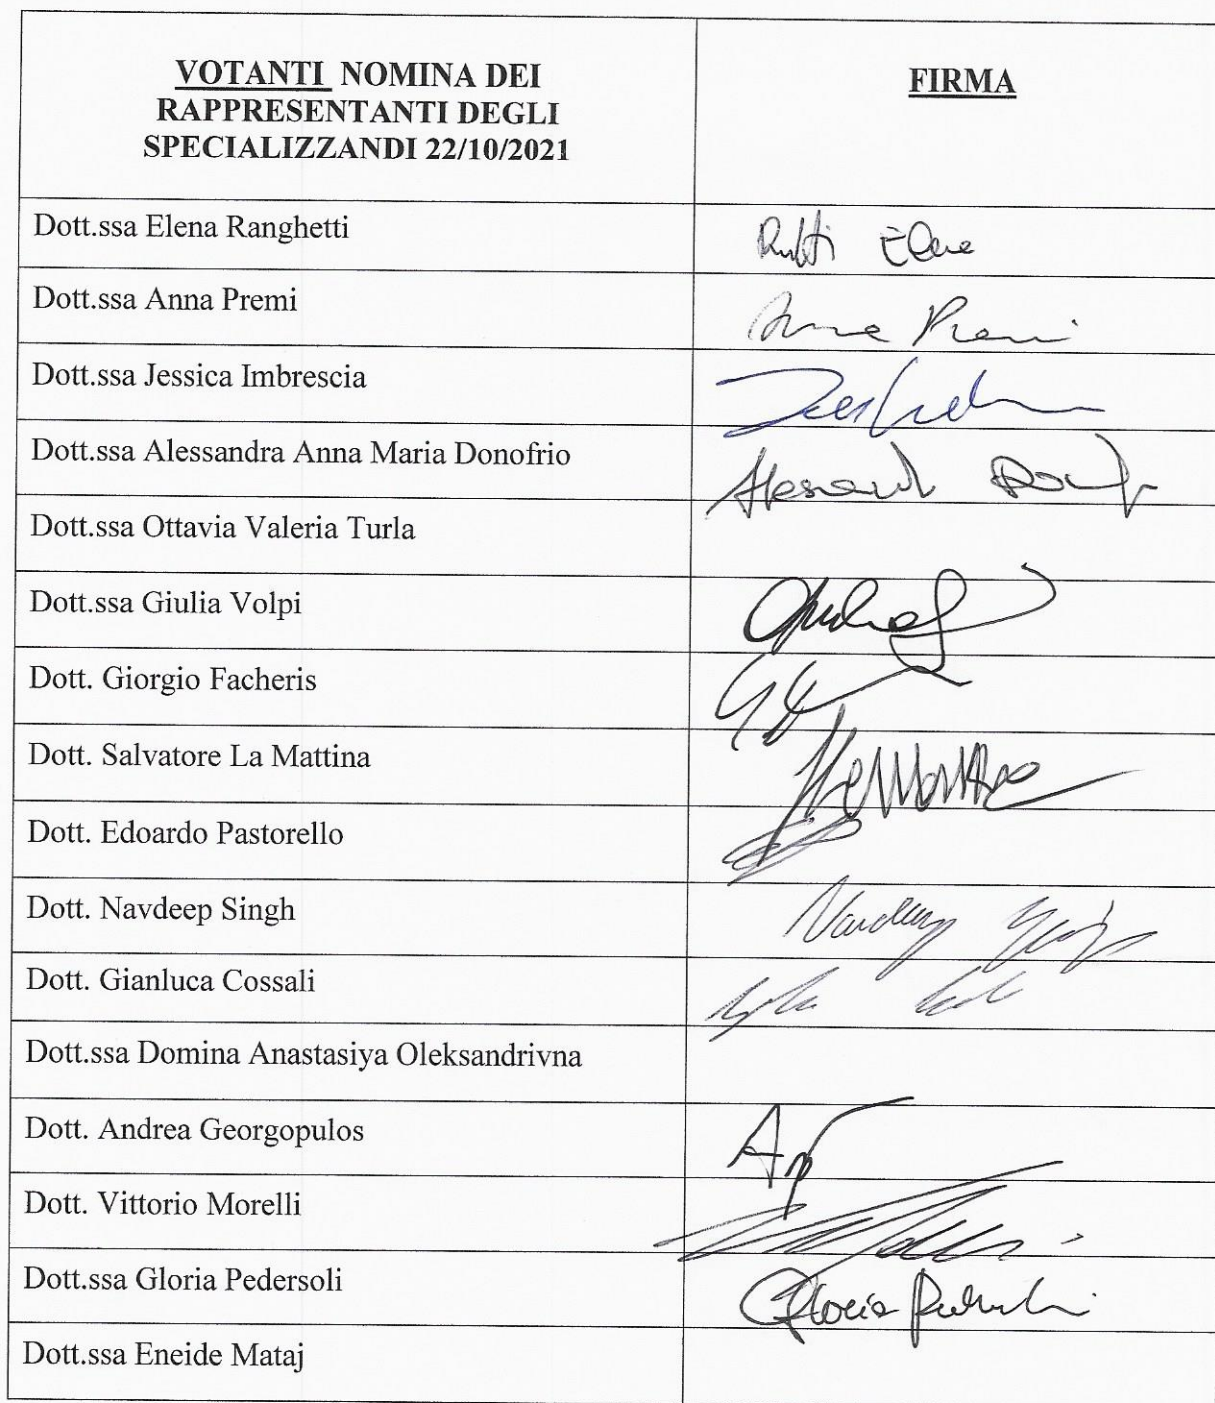 VOTANTI NOMINA DEI
RAPPRESENTANTI DEGLI
SPECIALIZZANDI 22/10/2021
FIRMA
Dott.ssa Elena Ranghetti
Dott.ssa Anna Premi Anna Premi
Dott.ssa Jessica Imbrescia
Dott.ssa Alessandra Anna Maria Donofrio
Dott.ssa Ottavia Valeria Turla
Dott.ssa Giulia Volpi
Dott. Giorgio Facheris
Dott. Salvatore La Mattina
Dott. Edoardo Pastorello
Dott. Navdeep Singh
Dott. Gianluca Cossali
Dott.ssa Domina Anastasiya Oleksandrivna
Dott. Andrea Georgopulos
Dott. Vittorio Morelli
Dott.ssa Gloria Pedersoli Gloria
Dott.ssa Eneide Mataj